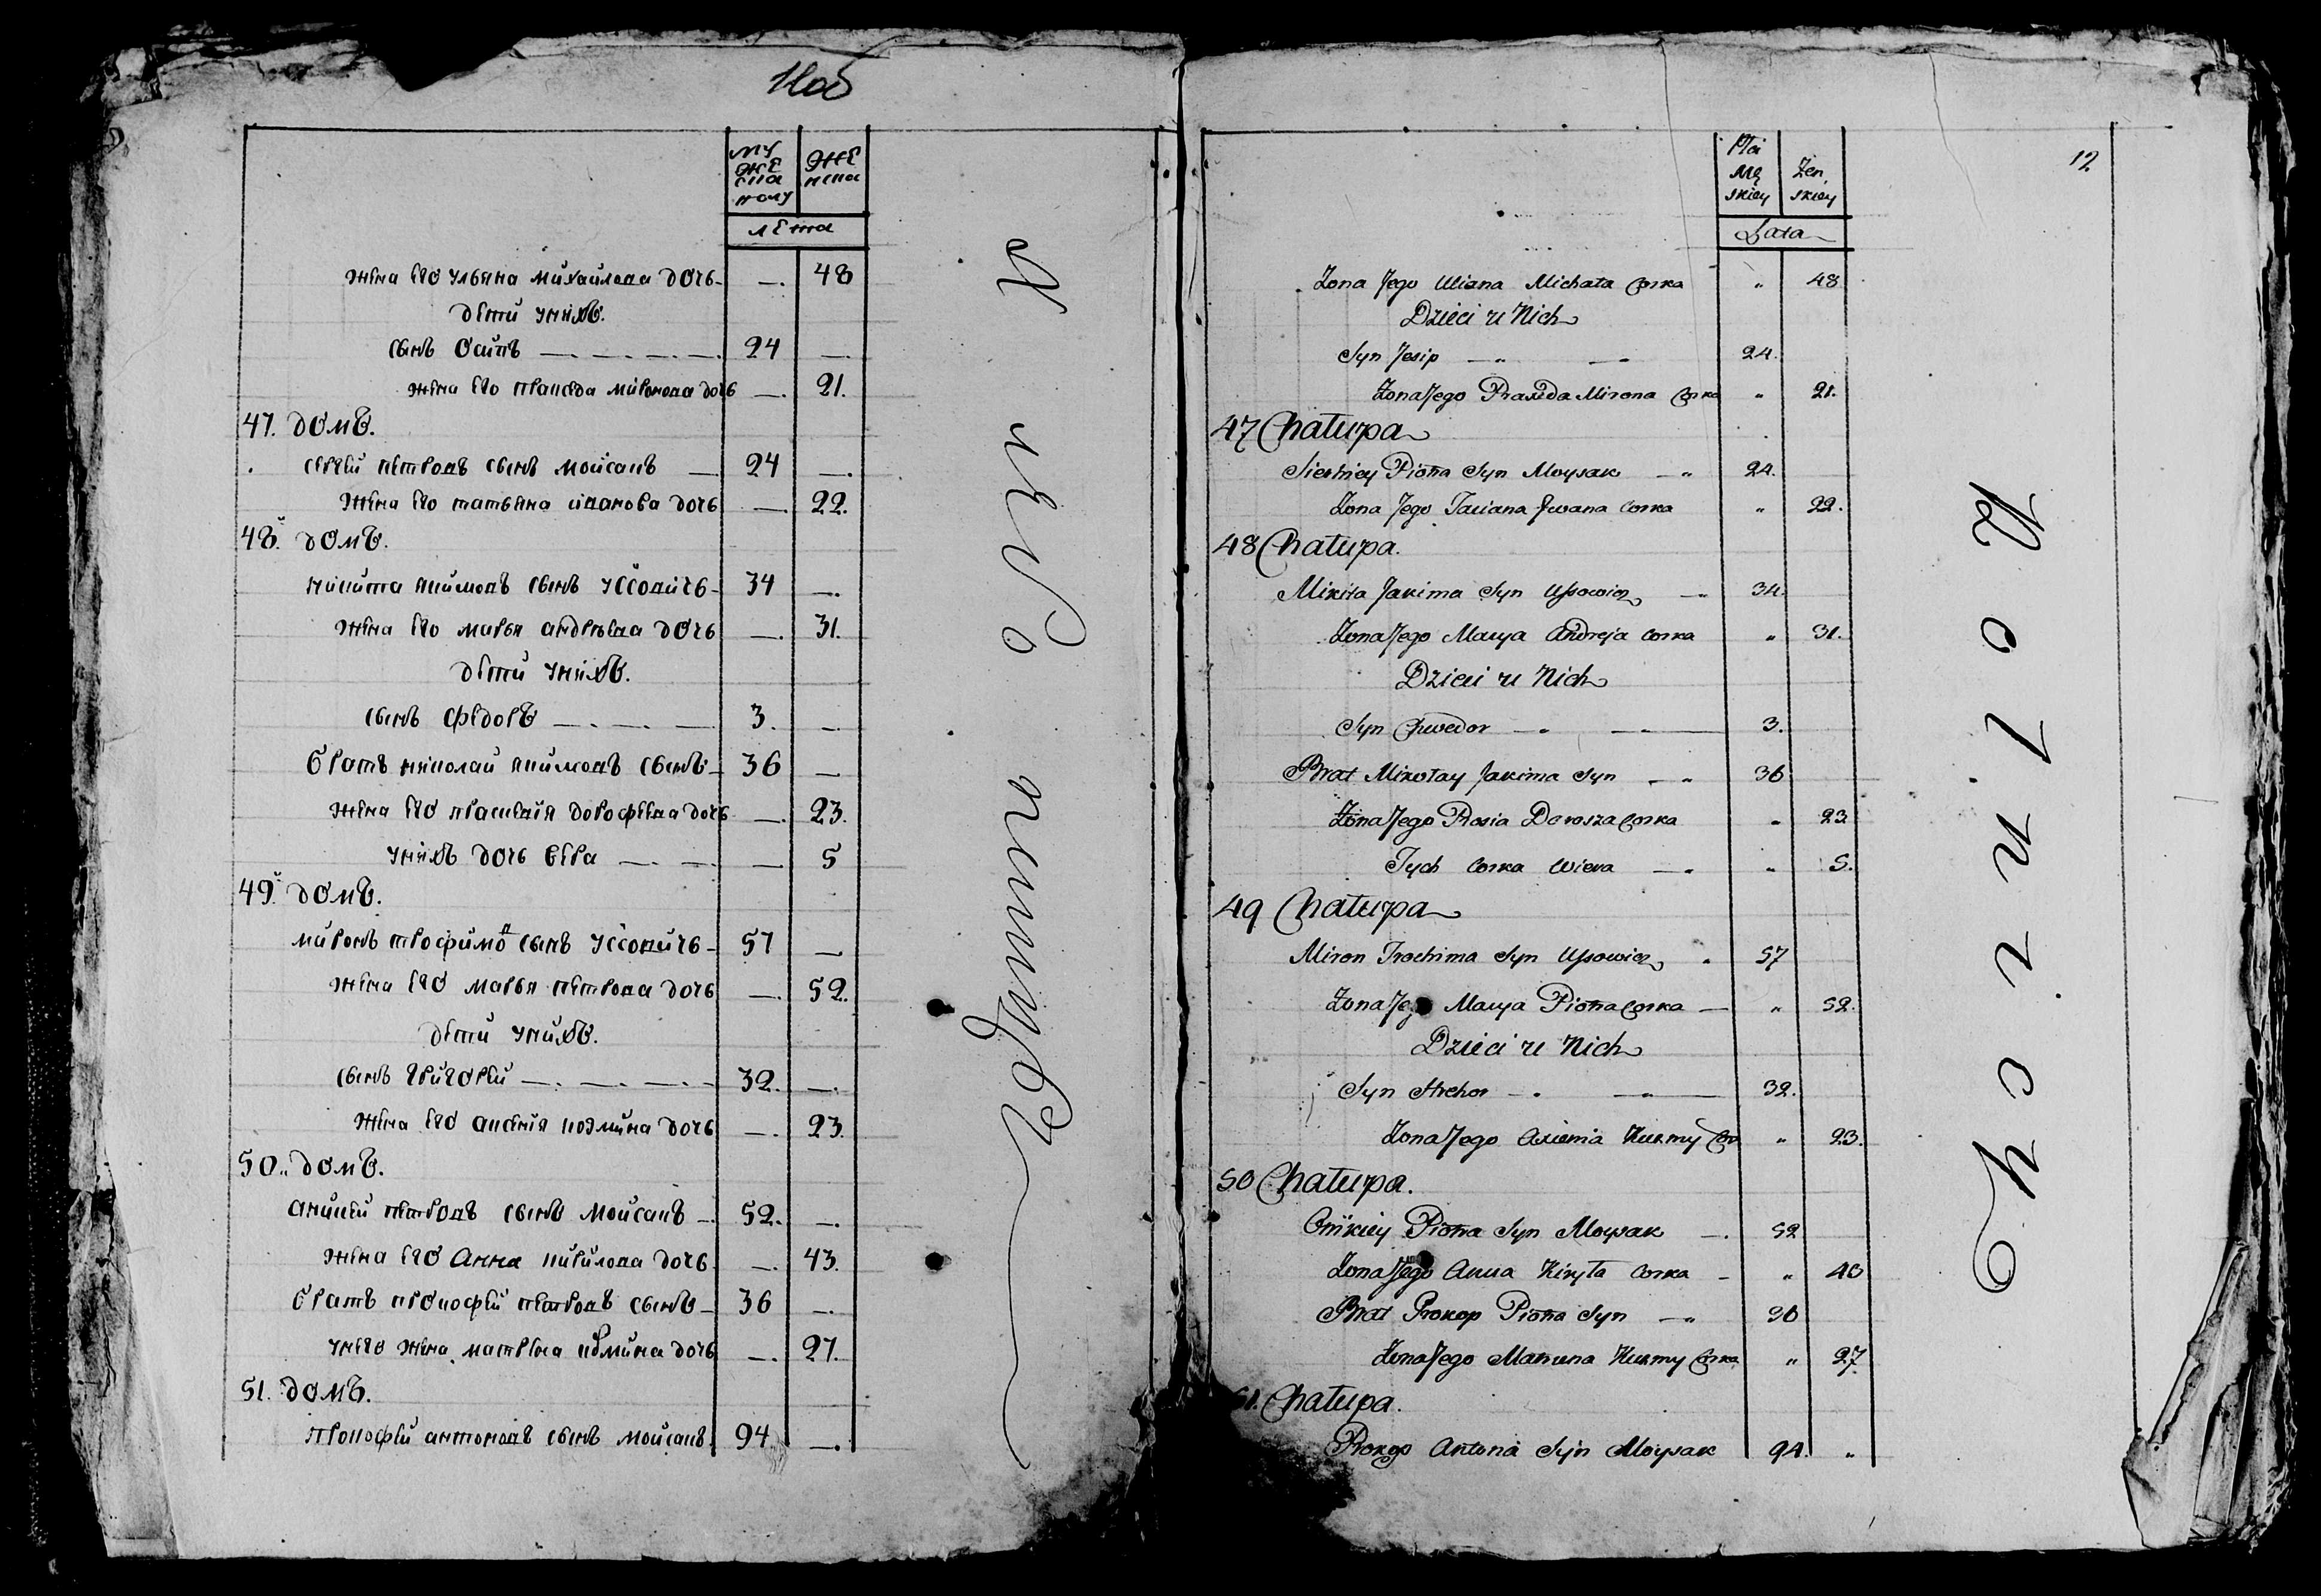 11об
му
же
ска
полу
же
нска
лета
жена его ульяна михайлова дочь — 48
дети у них.
сынъ осипъ 24 —
жена его праксѣда миронова дочь — 21.
47. домъ.
сергей петровъ сынъ мойсакъ 24 —
жена его татьяна иванова дочь — 22.
48. домъ.
никита якимовъ сынъ уссовичъ 34 —
жена его марья андреева дочь — 31.
дети у нихъ.
сынъ федоръ 3. —
братъ николай якимовъ сынъ 36 —
жена его прасковiя дорофеева дочь — 23.
у нихъ дочь вера — 5
49. домъ.
миронъ трофимовъ сынъ уссовичъ 57 —
жена его марья петрова дочь — 52.
дети у нихъ.
сынъ григорей 32. —
жена его аксенiя козмина дочь — 23.
50. домъ.
аникей петровъ сынъ мойсакъ 52. —
жена его Анна кирилова дочь — 43.
братъ прокофей петровъ сынъ 36 —
у него жена матрена козмина дочь — 27.
51. домъ.
прокофей антоновъ сынъ мойсакъ. 94. —
12
Płci
Mę
skiey
Żen
skiey
Lata
Żona Jego Uliana Michała Corka " 48
Dzieci u Nich
Syn Jesip 24.
Żona Jego Praxeda Mirona Corka " 21.
47 Chałupa
Sierhiey Piotra Syn Moysak 24.
Żona Jego Taciana Jwana Corka " 22.
48 Chałupa.
Mikita Jakima Syn Ussowicz 34.
Żona Jego Marya Andreja Corka " 31.
Dzieci u Nich
Syn Chwedor 3.
Brat Mikołay Jakima Syn 36
Żona Jego Prosia Dorosza Corka " 23
Tych Corka Wiera " 5.
49 Chałupa
Miron Trochima Syn Ussowicz 57
Żona Jego Marya Piotra Corka " 52.
Dzieci u Nich
Syn Hrehor 32.
Żona Jego Axienia Kuzmy Cor " 23.
50 Chałupa.
Onikiey Piotra Syn Moysak 52
Żona Jego Anna Kiryła Corka " 43
Brat Prokop Piotra Syn 36
Żona Jego Matruna Kuzmy Corka " 27
51. Chałupa.
Prokop Antona Syn Moysak 94. "